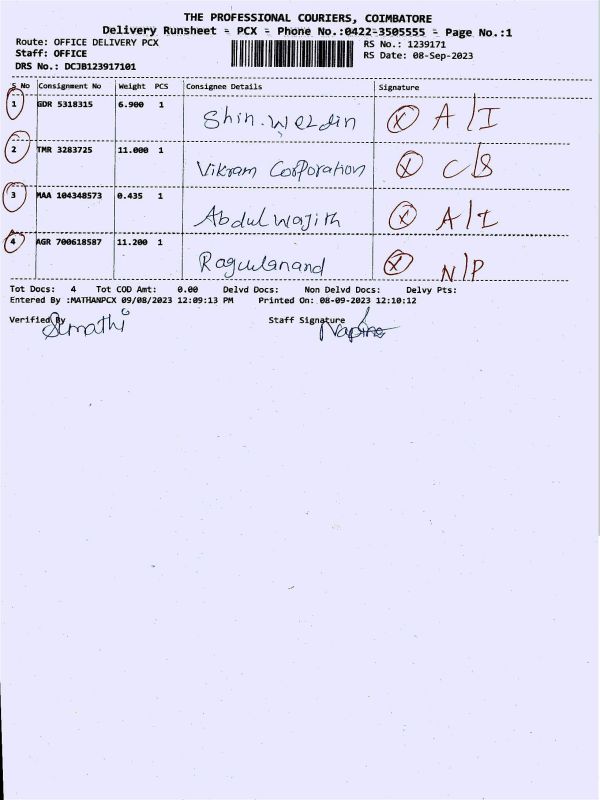 THE PROFESSIONAL COURIERS, COIMBATORE
Delivery Runsheet - PCX - Phone No.:0422-3505555 - Page No.:1
Route: OFFICE DELIVERY PCX RS No.: 1239171
Staff: OFFICE RS Date: 08-Sep-2023
DRS No.: DCJB123917101
S No Consignment No Weight PCS Consignee Details Signature
1 GDR 5318315 6.900 1 Shin.Weldin X A/I
2 TMR 3283725 11.000 1 Vikram Corporation X C/S
3 MAA 104348573 0.435 1 Abdul wajith X A/I
4 AGR 700618587 11.200 1 Raguulanand X N/P
Tot Docs: 4 Tot COD Amt: 0.00 Delvd Docs: Non Delvd Docs: Delvy Pts:
Entered By :MATHANPCX 09/08/2023 12:09:13 PM Printed On: 08-09-2023 12:10:12
Verified By Staff Signature